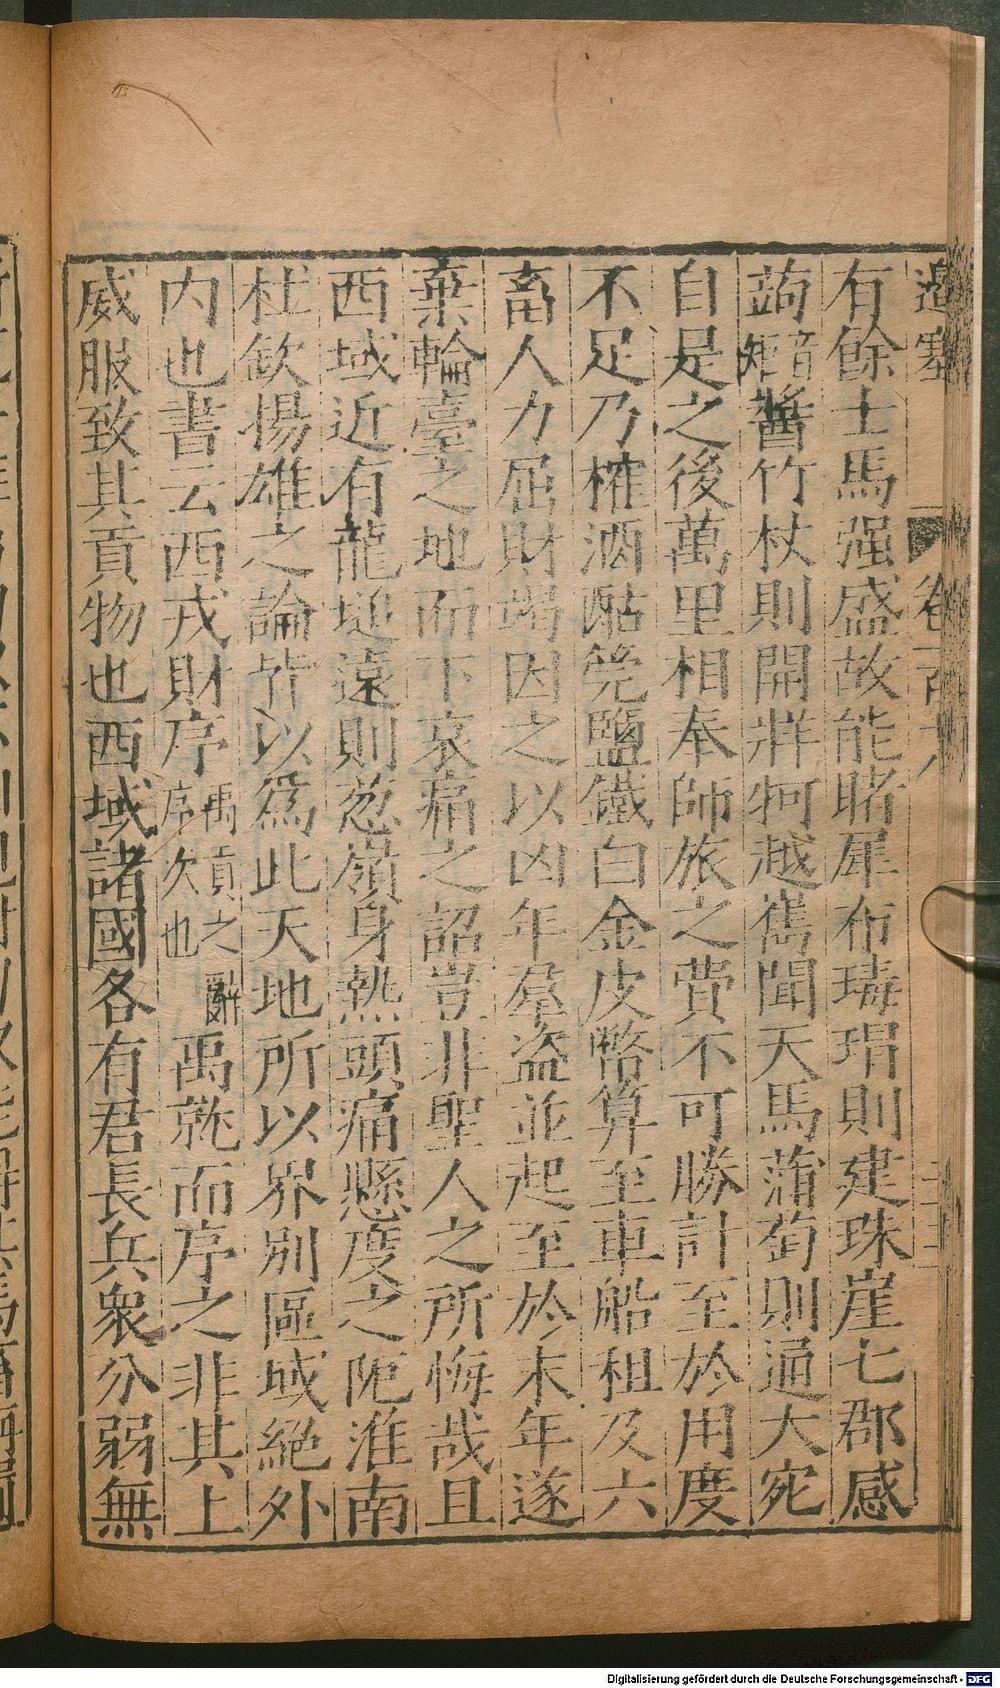 邊塞 卷百八
有餘士馬强盛故能睹犀布瑇瑁則建珠崖七郡感
蒟音矩醬竹杖則開牂牁越嶲聞天馬蒲萄則通大宛
自是之後萬里相奉師旅之費不可勝計至於用度
不足乃榷酒酤筦鹽鐵白金皮幣算至車船租及六
畜人力屈財竭因之以凶年羣盗並起至於末年遂
棄輪臺之地而下哀痛之詔豈非聖人之所悔哉且
西域近有龍堆遠則葱嶺身熱頭痛懸度之阨淮南
杜欽揚雄之論皆以爲此天地所以界别區域絶外
内也書云西戎財序禹貢之辭序次也禹就而序之非其上
威服致其貢物也西域諸國各有君長兵衆分弱無
Digitalisierung gefördert durch die Deutsche Forschungsgemeinschaft - DFG